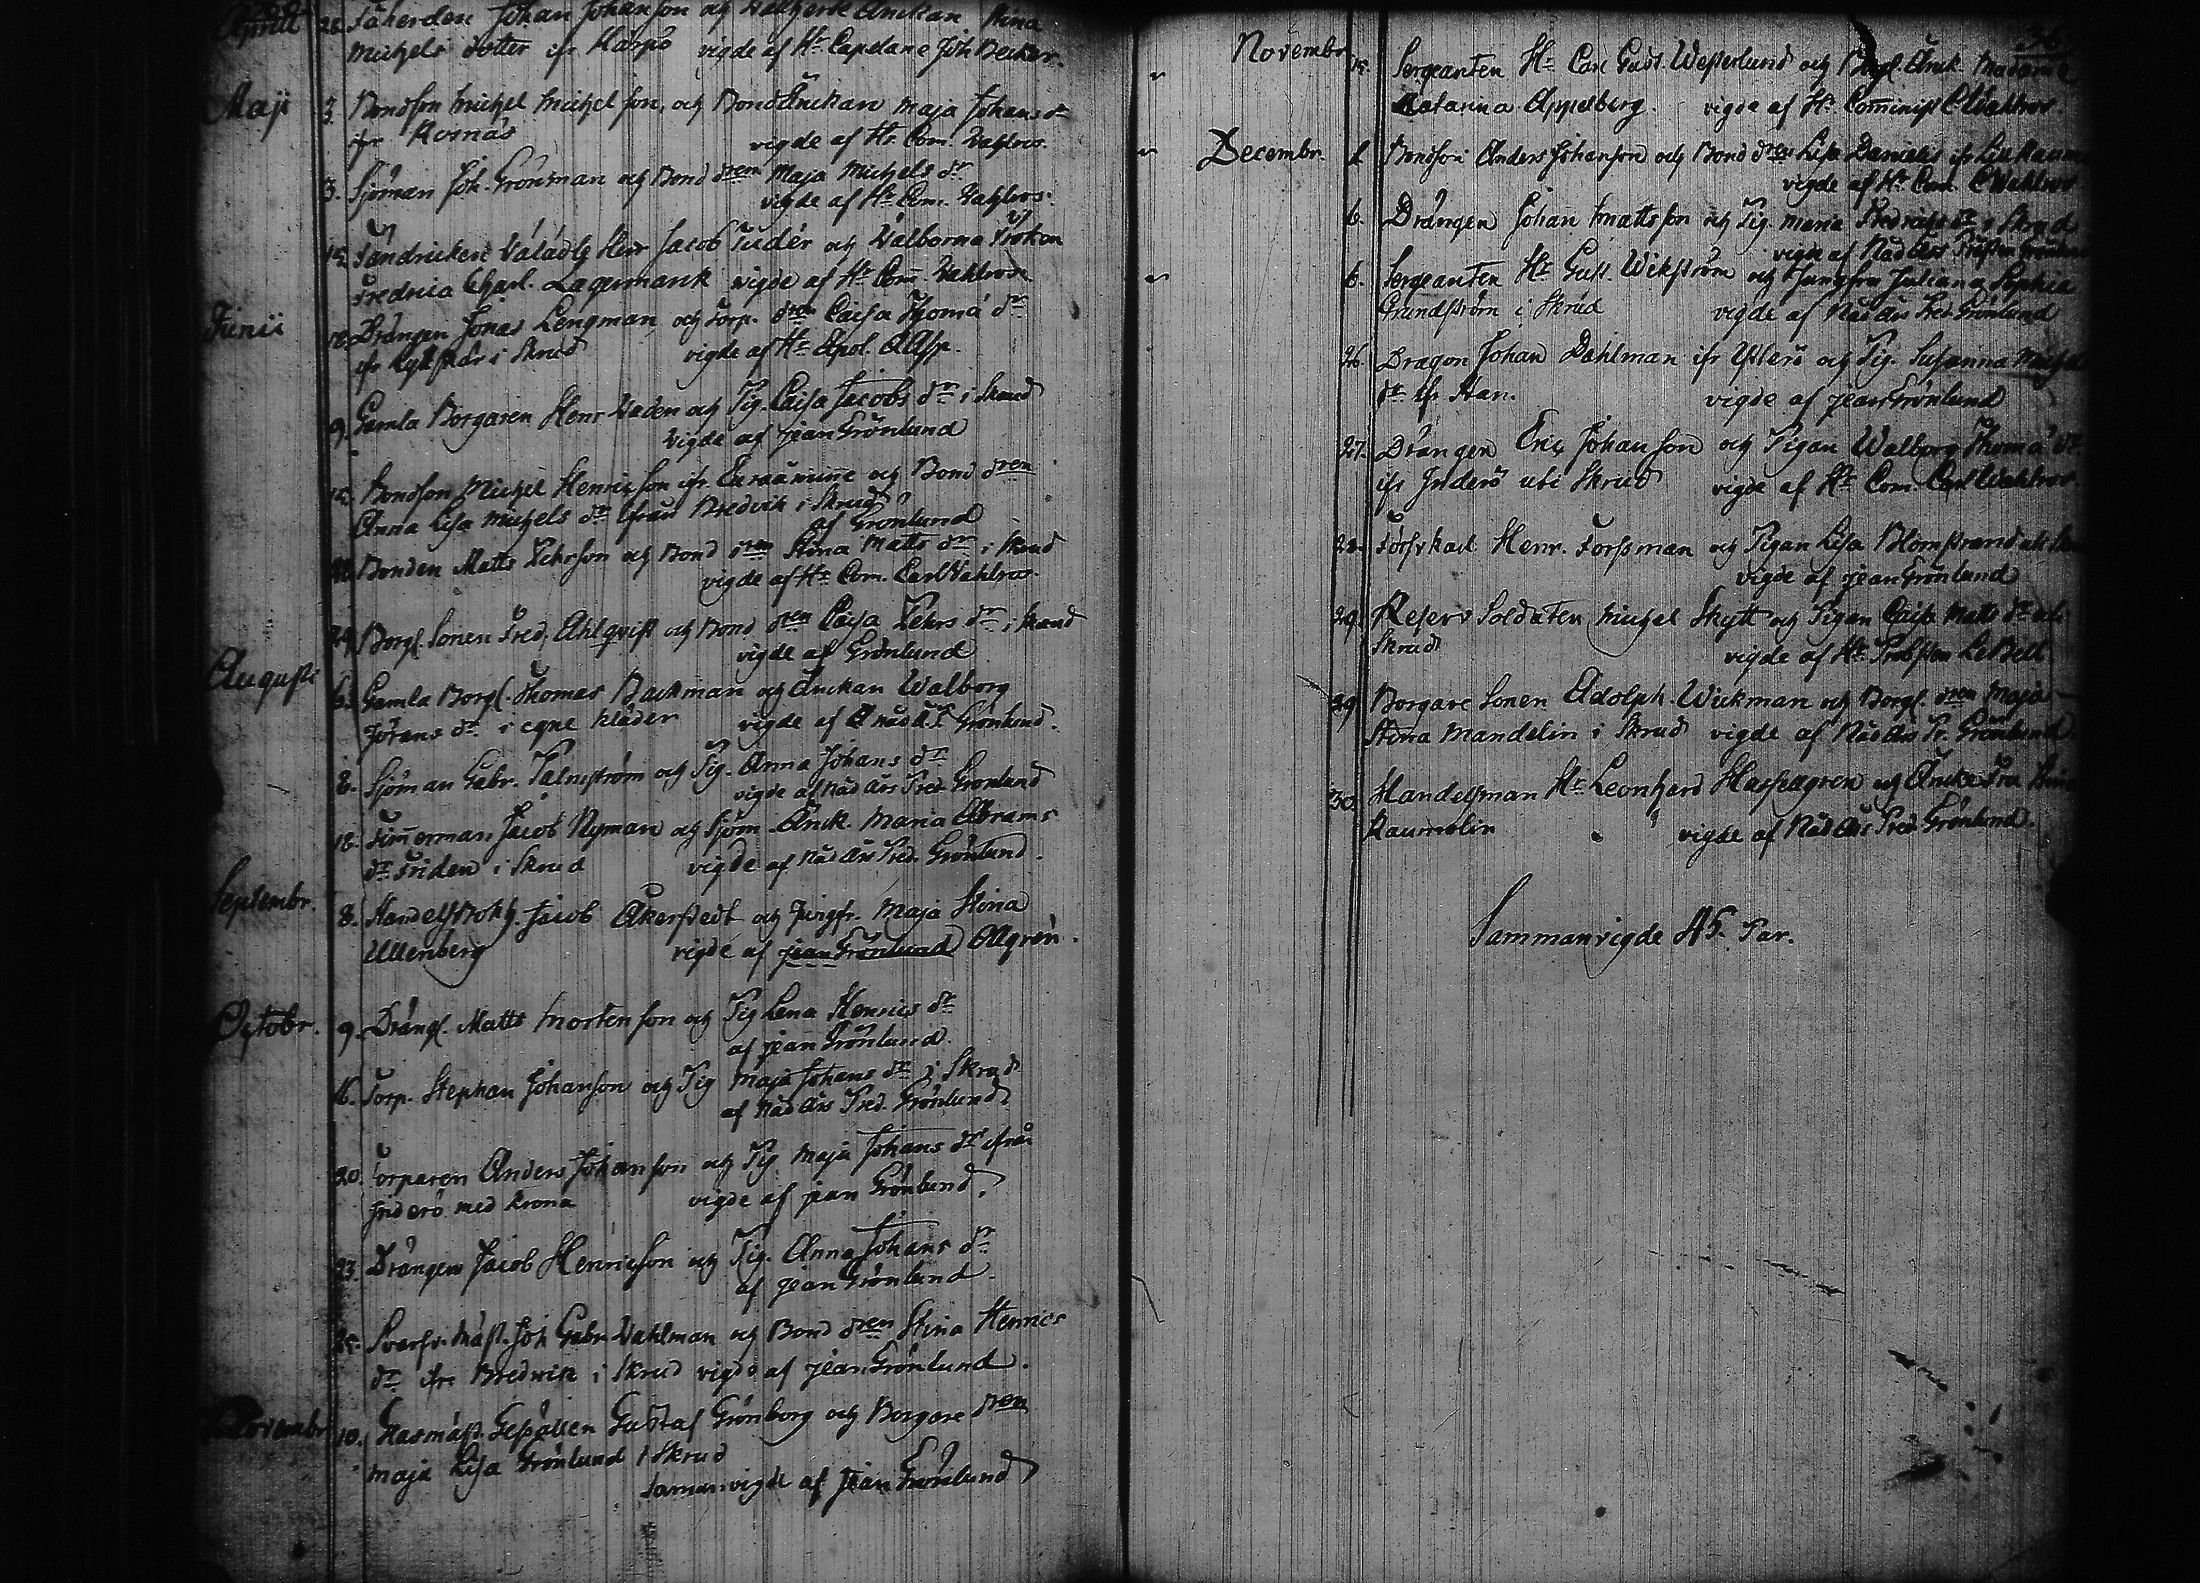 Aprill 26. Johan Johanson och Änckan Stina
Michels dotter ifr Harfwo vigde af Hr Capelane Joh Becker.
Maji 3. Bondson Michel Michelson, och Bond Änckan Maja Johans dr
ifr vigde af Hr. Com. Wahlroos.
3. Sjöman Joh. Grönman och Bond dren Maja Michels dr
vigde af Hr Com. Wahlroos.
15. Fändricken Välädle Herr Jacob Tudér och Välborna Fröken
Fredrica Charl. Lagermarck vigde af Hr Com. Wahlroos
Junii 18. Drängen Jonas Lengman och Torp. dren Caisa Thoma dr
ifr i Skrud vigde af Hr Apol. A Asp.
9. Gamla Borgaren Henr Waden och Pig. Caisa Jacobs dr i Skrud
vigde af Jean Grönlund
15. Bondson Michel Henricson ifr och Bond dren
Anna Lisa Michels dr ifrån Bredvik i Skrud
af Grönlund
22. Bonden Matts Pehrson och Bond dren Stina Matts dr i Skrud
vigde af Hr Com. Carl Wahlroos.
29. Borgl. Sonen Fred. Ahlqvist och Bond dren Caisa Pehrs dr i Skrud
vigde af Grönlund
Augusti 6. Gamla Borgl. Thomas Backman och Änckan Walborg
Jörans dr i egne kläder vigde af Grönlund.
8. Sjöman Gabr. Palmström och Pig. Anna Johans dr
vigde af Nåd Års Pred. Grönlund
18. Timmerman Jacob Nyman och Sjöm. Änck. Maria Abrams
dr Friden i Skrud vigde af Nåd Års Pred. Grönlund.
Septembr. 8. Handelsbokh. Jacob Åkerstedt och Jungfr. Maja Stina
Ullenberg vigde af Jean Grönlund Allgrén.
Octobr. 9. Drängl. Matts Mortenson och Pig Lena Henrics dr
af Jean Grönlund.
16. Torp. Stephan Johanson och Pig Maja Johans dr i Skrud
af Nåd Års Pred. Grönlund
20. Torparen Anders Johanson och Pig. Maja Johans dr ifrån
Inderö med krona vigde af Jean Grönlund.
23. Drängen Jacob Henricson och Pig. Anna Johans dr
af Jean Grönlund.
25. Svarfv. Mäst. Joh Gabr. Wahlman och Bond dren Stina Henrics
dr ifr. Bredwik i Skrud vigde af Jean Grönlund.
Novembr 10. Glasmäst. Gesällen Gustaf Grönborg och Borgare dren
Maja Lisa Grönlund i Skrud
Sammanvigde af Jean Grönlund
Novembr. 15. Sergeanten Hr Carl Gust. Westerlund och Borgl. Änck. Madame
Catarina Appelberg. vigde af Hr Comminist C Wahlroos
Decembr. 1. Bondson Anders Johanson och Bond dren Lisa Daniels
vigde af Hr Com. C Wahlroos
6. Drängen Johan Mattsson och Pig. Maria Fredrichs dr i Skrud
vigde af Nåd Års Prästen Grönlund
6. Sergeanten Hr Gust Wikström och Jungfru Juliana Sophia
Grundström i Skrud vigde af Nåd Års Pred. Grönlund
26. Dragon Johan Dahlman ifr Ytterö och Pig. Susanna Michels
dr ifr Han. vigde af Jean Grönlund
27. Drängen Eric Johanson och Pigan Walborg Thoma dr
ifr Inderö uti Skrud vigde af Hr Com. Carl Wahlroos.
28. Henr. Forssman och Pigan Lisa Blomstrand uti
vigde af Jean Grönlund
29. Reserv Soldaten Michel Skytt och Pigan Caisa Matts dr uti
Skrud vigde af Hr Probsten LeBell
29 Borgare Sonen Adolph Wickman och Borgl. dren Maja
Stina Mandelin i Skrud vigde af Nåd Års Pr. Grönlund.
30. Handelsman Hr Leonhard Hasselgren och Äncke Fru
Raumolin vigde af Nåd Års Pred. Grönlund.
Sammanvigde 45. Par.